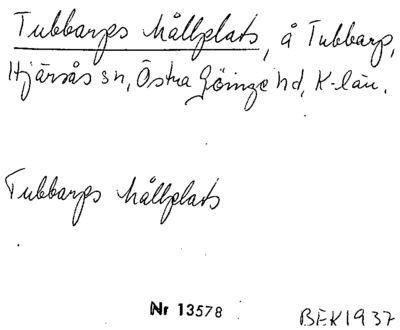 Tubbarps hållplats, å Tubbarp,
Hjärsås sn, Östra Göinge hd, K-län.
Tubbarps hållplats
Nr 13578
BEK1937